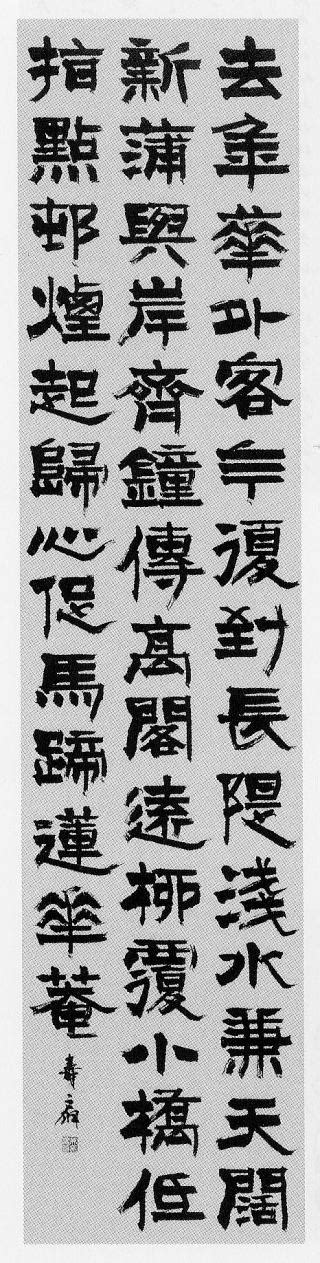 去年華外客復到長隄淺水兼天闊
新蒲與岸齊鐘傳高閣遠柳覆小橋低
指點邨煙起歸心促馬蹄蓮華菴 壽